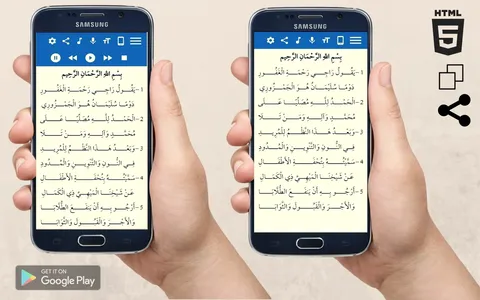 SAMSUNG
بِسْمِ اللهِ الرَّحْمَانِ الرَّحِيمِ
1 - يَقُولُ رَاجِي رَحْمَةِ الْغَفُورِ
دَوْمًا سُلَيْمَانُ هُوَ الْجَمْزُورِي
2 - الْحَمْدُ لِلَّهِ مُصَلِّيًا عَلَى
مُحَمَّدٍ وَآلِهِ وَمَنْ تَلَا
3 - وَبَعْدُ هَذَا النَّظْمُ لِلْمُرِيدِ
فِي النُّونِ وَالتَّنْوِينِ وَالْمُدُودِ
4 - سَمَّيْتُهُ بِتُحْفَةِ الْأَطْفَالِ
عَنْ شَيْخِنَا الْمِيهِيِّ ذِي الْكَمَالِ
5 - أَرْجُو بِهِ أَنْ يَنْفَعَ الطُّلَّابَا
وَالْأَجْرَ وَالْقَبُولَ وَالثَّوَابَا
SAMSUNG
بِسْمِ اللهِ الرَّحْمَانِ الرَّحِيمِ
1 - يَقُولُ رَاجِي رَحْمَةِ الْغَفُورِ
دَوْمًا سُلَيْمَانُ هُوَ الْجَمْزُورِي
2 - الْحَمْدُ لِلَّهِ مُصَلِّيًا عَلَى
مُحَمَّدٍ وَآلِهِ وَمَنْ تَلَا
3 - وَبَعْدُ هَذَا النَّظْمُ لِلْمُرِيدِ
فِي النُّونِ وَالتَّنْوِينِ وَالْمُدُودِ
4 - سَمَّيْتُهُ بِتُحْفَةِ الْأَطْفَالِ
عَنْ شَيْخِنَا الْمِيهِيِّ ذِي الْكَمَالِ
5 - أَرْجُو بِهِ أَنْ يَنْفَعَ الطُّلَّابَا
وَالْأَجْرَ وَالْقَبُولَ وَالثَّوَابَا
HTML
5
GET IT ON
Google Play